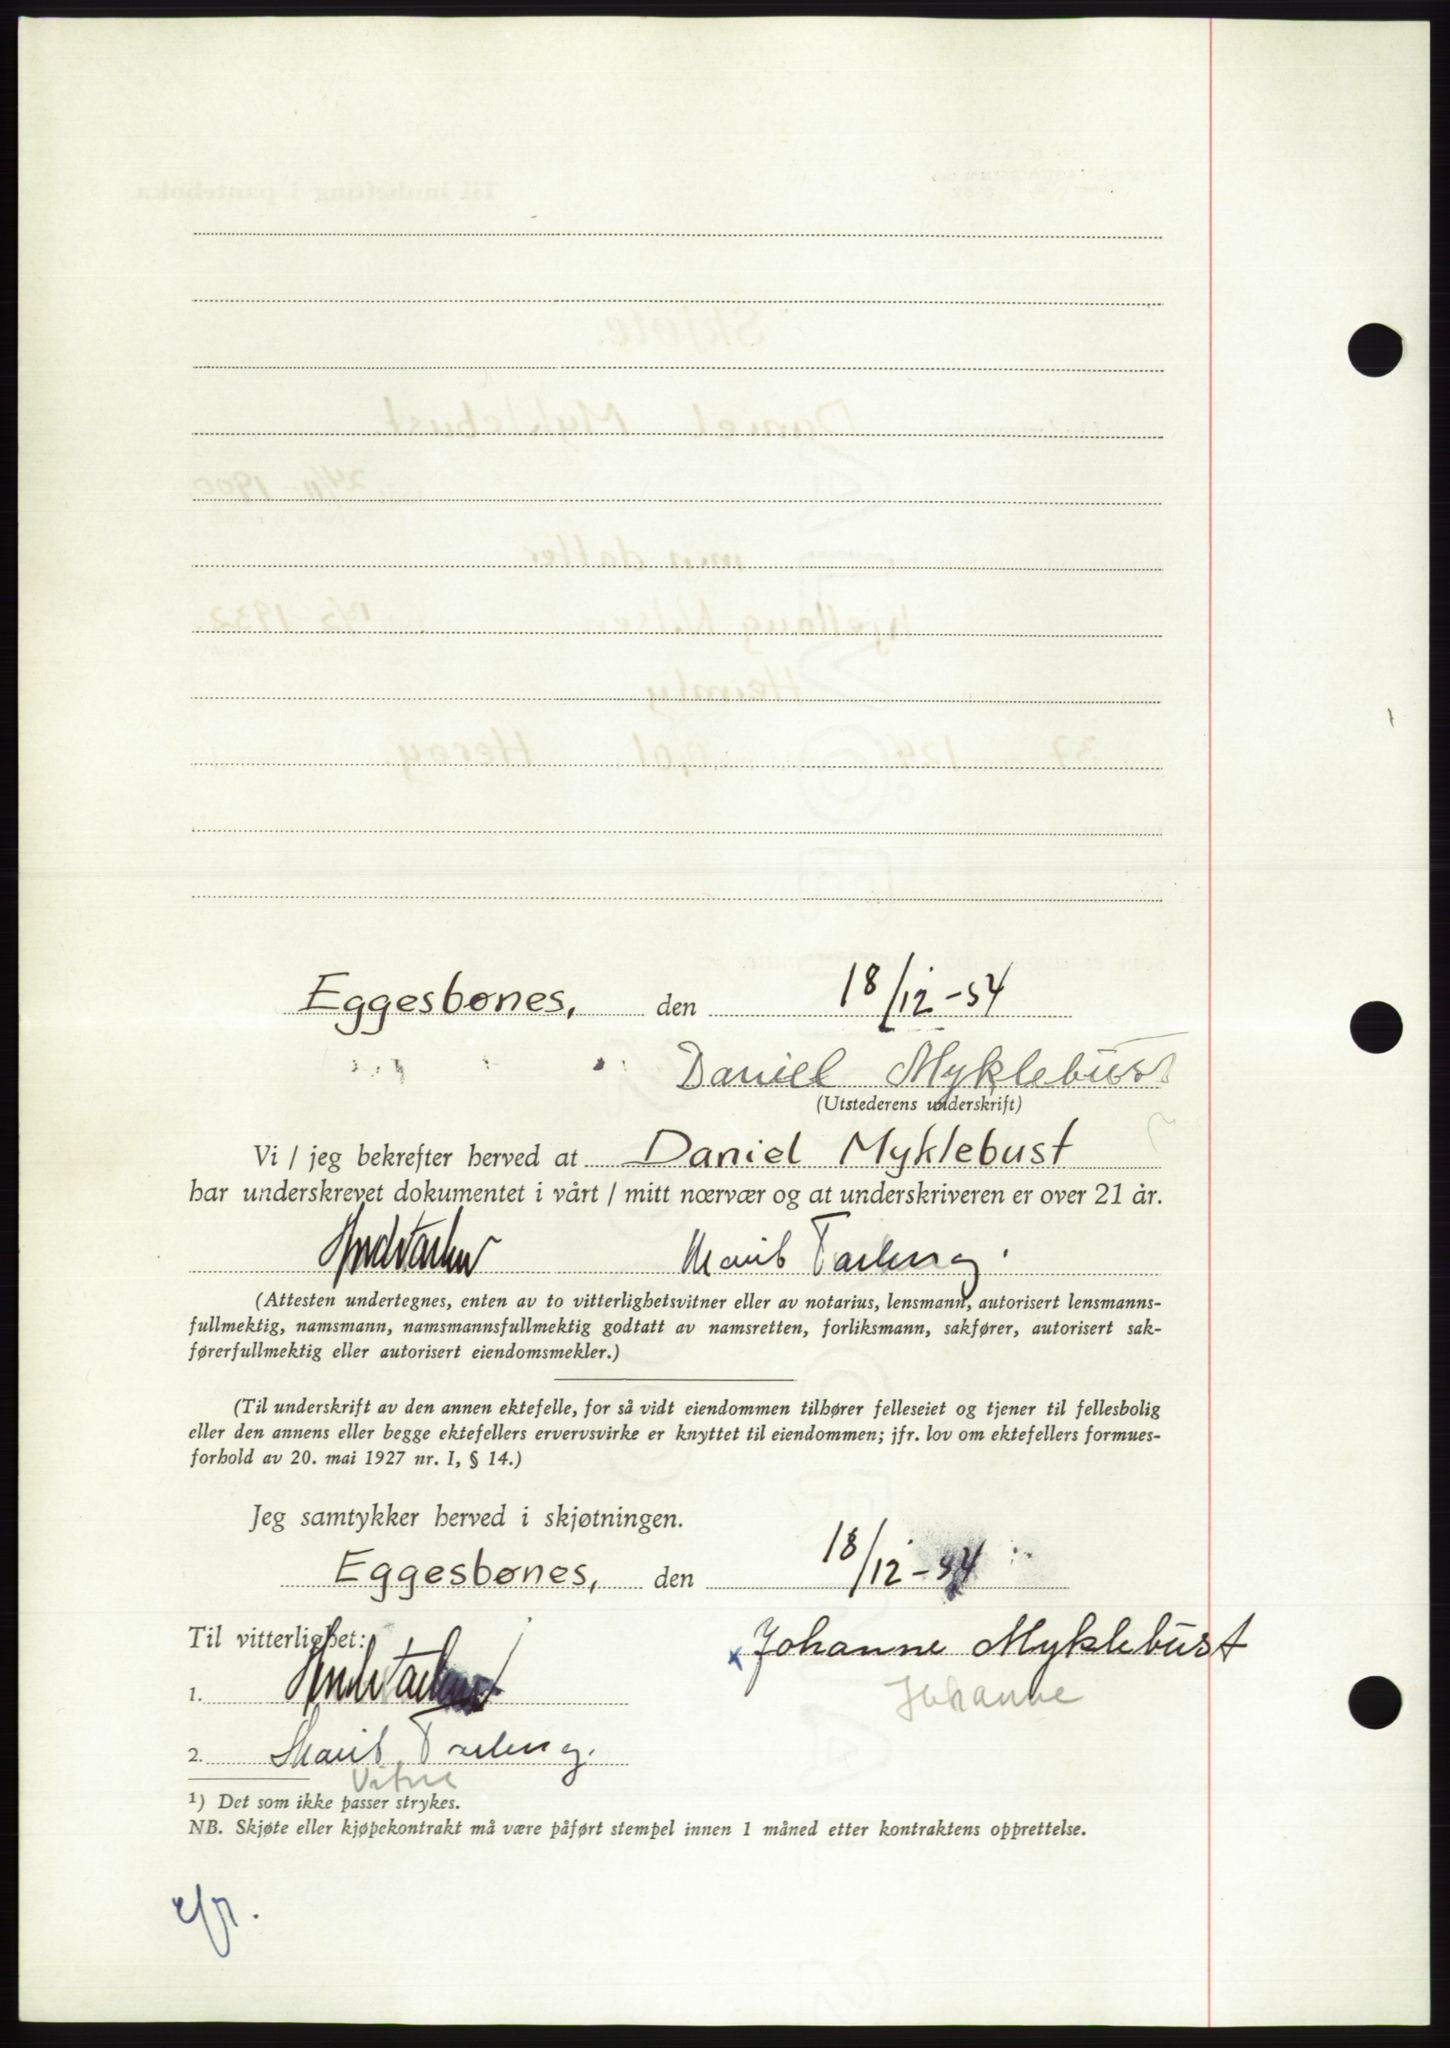 Eggesbønes, den 18/12-54
Daniel Myklebust
(Utstederens underskrift)
Vi / jeg bekrefter herved at Daniel Myklebust
har underskrevet dokumentet i vårt / mitt nærvær og at underskriveren er over 21 år.
(Attesten undertegnes, enten av to vitterlighetsvitner eller av notarius, lensmann, autorisert lensmanns-
fullmektig, namsmann, namsmannsfullmektig godtatt av namsretten, forliksmann, sakfører, autorisert sak-
førerfullmektig eller autorisert eiendomsmekler.)
(Til underskrift av den annen ektefelle, for så vidt eiendommen tilhører felleseiet og tjener til fellesbolig
eller den annens eller begge ektefellers ervervsvirke er knyttet til eiendommen; jfr. lov om ektefellers formues-
forhold av 20. mai 1927 nr. 1, § 14.)
Jeg samtykker herved i skjøtningen.
Eggesbønes, den 18/12-54
Til vitterlighet:
x Johanne Myklebust
Johanne
1.
2.
1) Det som ikke passer strykes.
NB. Skjøte eller kjøpekontrakt må være påført stempel innen 1 måned etter kontraktens opprettelse.